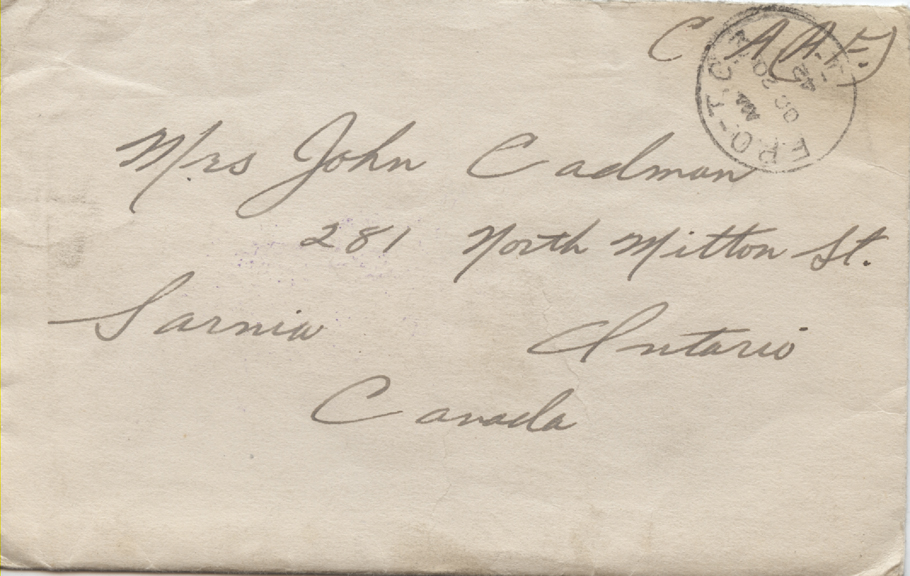 C A (A.F.)
F.P.O.-T.C.
AM
OC 20
42
Mrs John Cadman
281 North Mitton St.
Sarnia Ontario
Canada